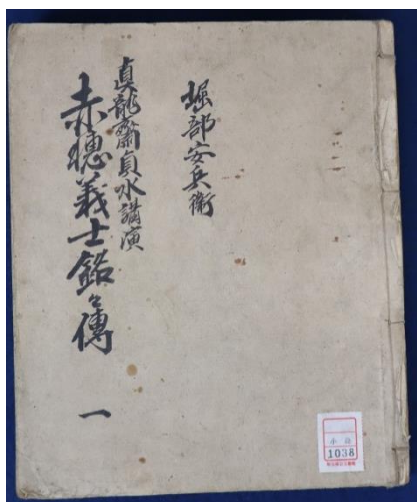 堀部安兵衛
真龍齋貞水講演
赤穂義士銘々傳 一
小説
1038